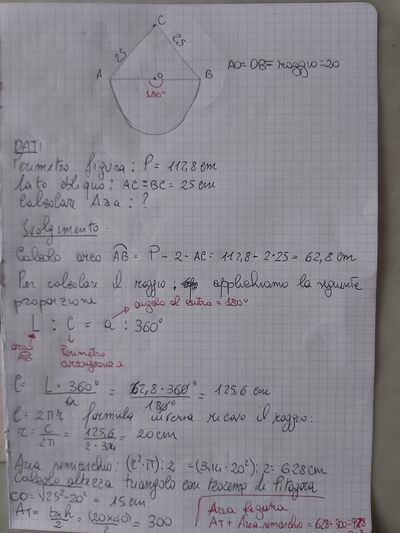 C
25
25
A
O
B
180°
AO=OB= raggio=20
DATI
Perimetro figura: P= 112,8 cm
lato obliquo: AC=BC= 25 cm
Calcolare Area: ?
Svolgimento
Calcolo arco AB = P - 2·AC= 112,8- 2·25 = 62,8 cm
Per calcolare il raggio, applichiamo la seguente
proporzione
angolo al centro = 180°
L : C = α : 360°
arco
AB
Perimetro
circonferenza
C= L·360°/α = 62,8·360°/180° = 125,6 cm
C= 2πr formula inversa ricavo il raggio:
r= C/2π = 125,6/2·3,14 = 20 cm
Area semicerchio: (r²·π):2 =(3,14·20²):2= 628 cm
Calcolo altezza triangolo con teorema di Pitagora
CO=√25²-20² = 15 cm
AT= bxh/2 = (20x40)/2 = 300
Area figura
AT + Area semicerchio = 628+300=928